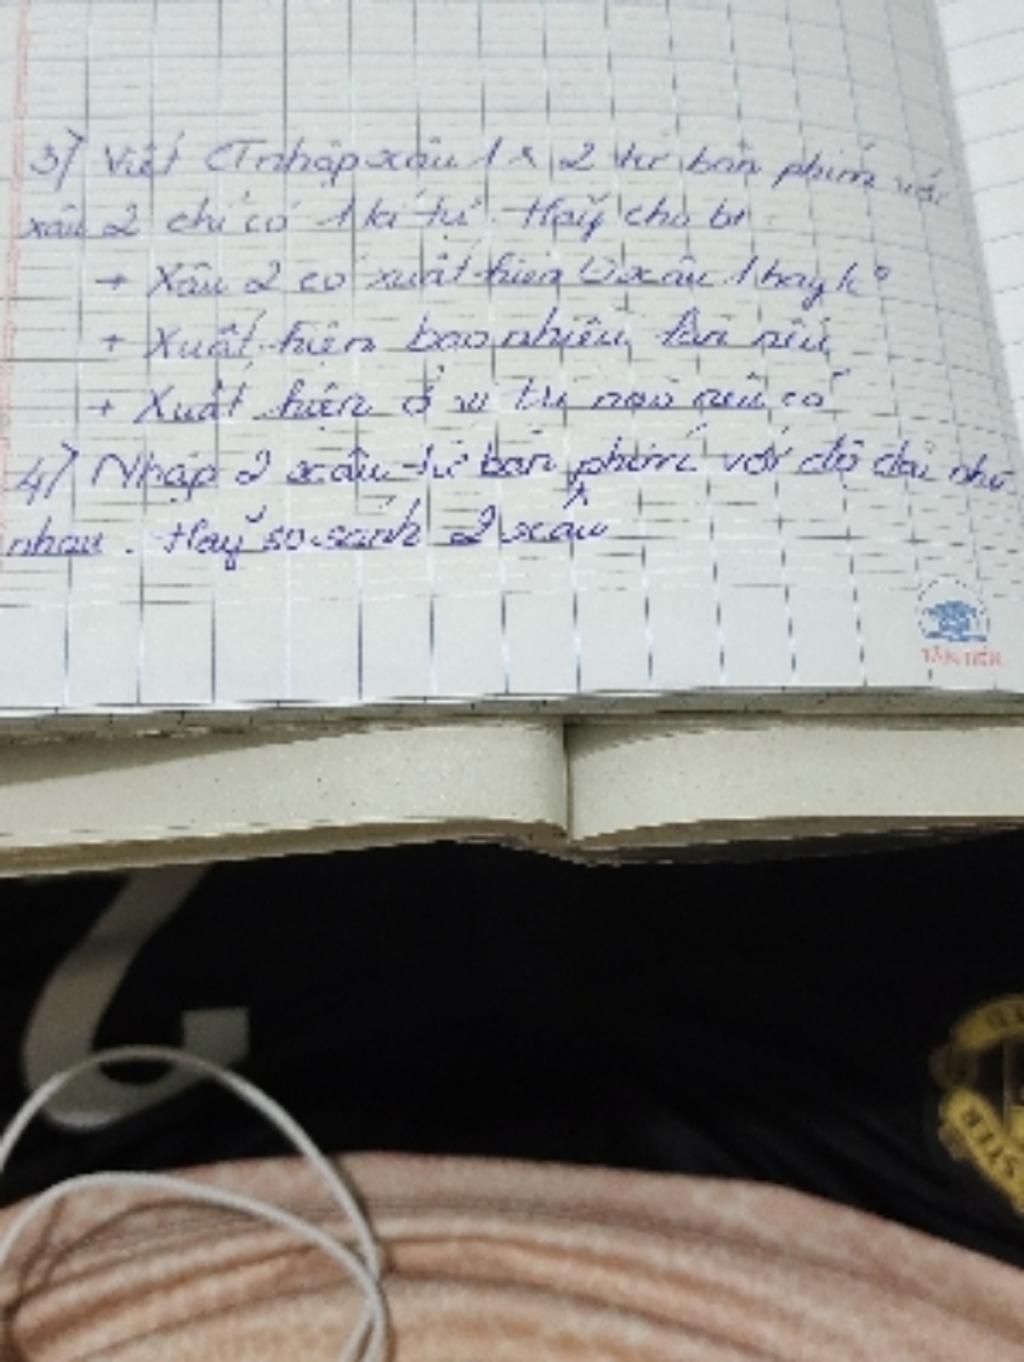 3) Viết CT nhập xâu 1 & 2 từ bàn phím với
xâu 2 chỉ có 1 kí tự. Hãy cho bt
+ Xâu 2 có xuất hiện ở xâu 1 hay k°
+ Xuất hiện bao nhiêu lần nếu
+ Xuất hiện ở vị trí nào nếu có
4) Nhập 2 xâu từ bàn phím với độ dài như
nhau. Hãy so sánh 2 xâu
TÂN TIẾN
STER